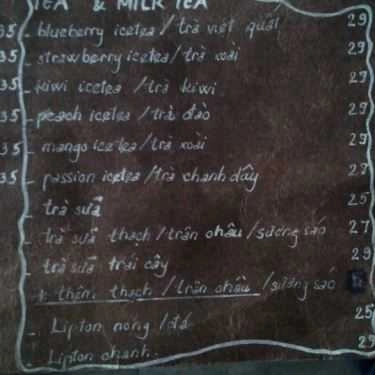 TEA & MILK TEA
35 - blueberry icetea / trà việt quất 29
- strawberry icetea / trà xoài 29
35 - kiwi icetea / trà kiwi 29
35 - peach icetea / trà đào 29
35 - mango icetea / trà xoài 29
35 - passion icetea / trà chanh dây 29
- trà sữa 25
- trà sữa thạch / trân châu / sương sáo 27
- trà sữa trái cây 29
+ thêm thạch / trân châu / sương sáo
- Lipton nóng / đá 25
- Lipton chanh. 29